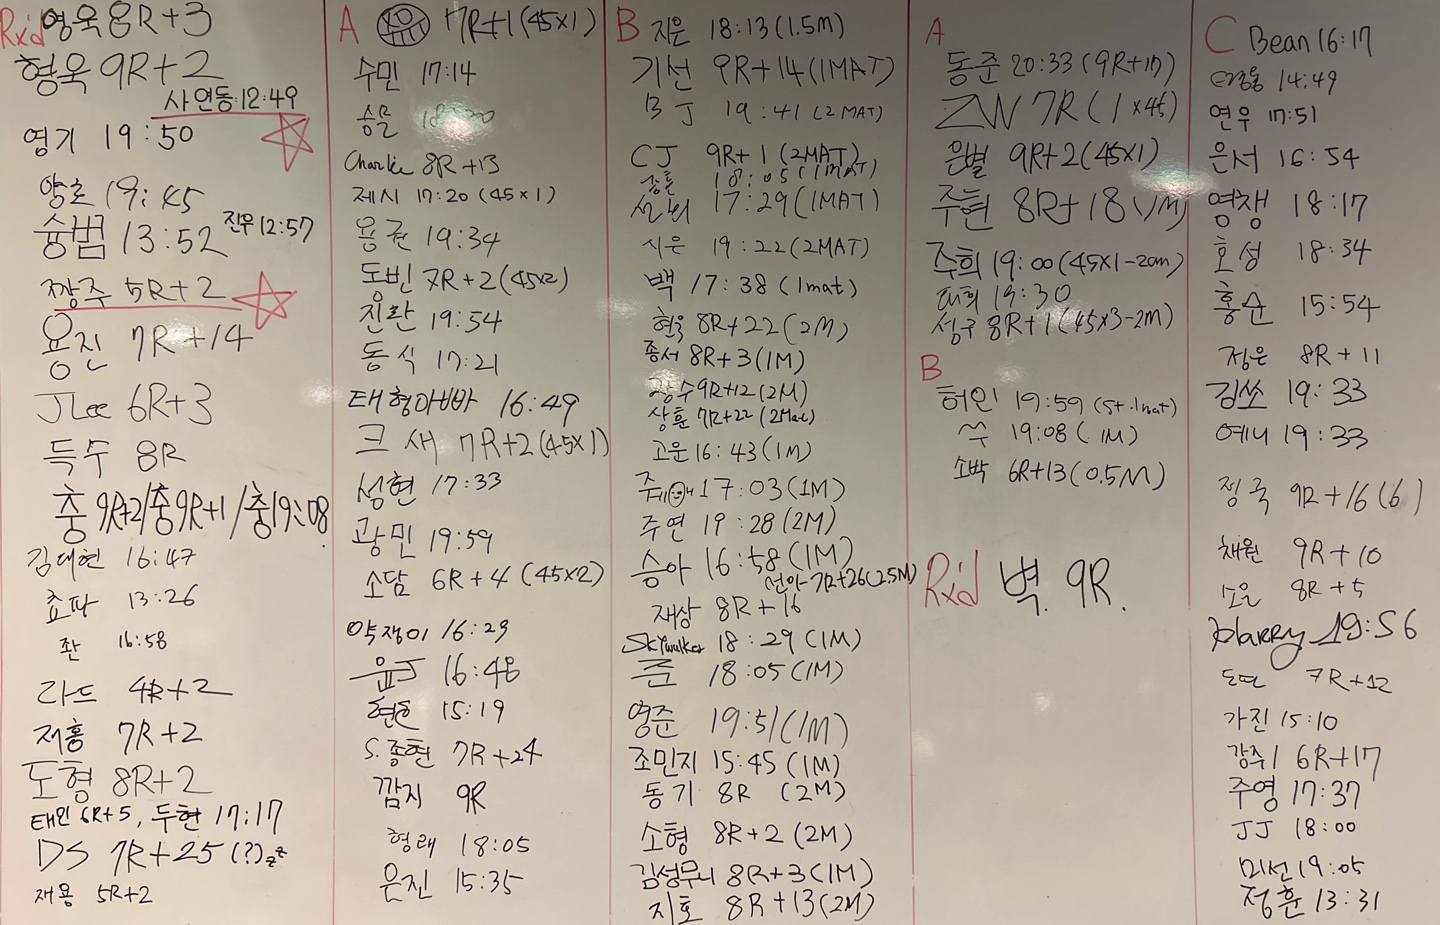 Rx'd 영욱 8R+3
형욱 9R+2
사연동:12:49
영기 19:50
양호 19:45
슝범 13:52
진우 12:57
짱주 5R+2
용진 7R+14
JLee 6R+3
득수 8R
충 9R+2/충 9R+1/충 19:08
김대현 16:47
쵸파 13:26
좐 16:58
라드 4R+2
저홍 7R+2
도형 8R+2
태민 6R+5, 두현 17:17
DS 7R+25 (?)zzz
재용 5R+2
A 7R+1 (45x1)
수민 17:14
Charlie 8R+13
제시 17:20 (45x1)
용권 19:34
도빈 7R+2 (45x2)
진환 19:54
동식 17:21
태형아빠 16:49
크새 7R+2 (45x1)
성현 17:33
광민 19:59
소담 6R+4 (45x2)
약쟁이 16:29
윤J 16:48
15:19
S.종현 7R+24
깜지 9R
형래 18:05
은진 15:35
B 지은 18:13 (1.5M)
기선 9R+14 (1MAT)
BJ 19:41 (2MAT)
CJ 9R+1 (2MAT)
18:05 (1MAT)
17:29 (1MAT)
시은 19:22 (2MAT)
백 17:38 (1mat)
현욱 8R+22 (2M)
종서 8R+3 (1M)
광수 9R+12 (2M)
상훈 7R+22 (2Mat)
고운 16:43 (1M)
17:03 (1M)
주연 19:28 (2M)
승아 16:58 (1M)
선아 7R+26 (2.5M)
재상 8R+16
Skywalker 18:29 (1M)
준 18:05 (1M)
영준 19:51 (1M)
조민지 15:45 (1M)
동기 8R (2M)
소형 8R+2 (2M)
김성무니 8R+3 (1M)
지호 8R+13 (2M)
A
동준 20:33 (9R+17)
ZW 7R (1x45)
은별 9R+2 (45x1)
주현 8R+18 (1M)
주희 19:00 (45x1-20m)
태희 19:30
성구 8R+1 (45x3-2M)
B
허인 19:59 (5ft.1mat)
쑤 19:08 (.1M)
소박 6R+13 (0.5M)
Rx'd 벽. 9R.
C Bean 16:17
14:49
연우 17:51
은서 16:54
영쟁 18:17
호성 18:34
홍순 15:54
정은 8R+11
김쏘 19:33
예니 19:33
정국 9R+16 (6)
채원 9R+10
소은 8R+5
Harry 19:56
도연 7R+12
가진 15:10
강주1 6R+17
주영 17:37
JJ 18:00
미선 19:05
정훈 13:31